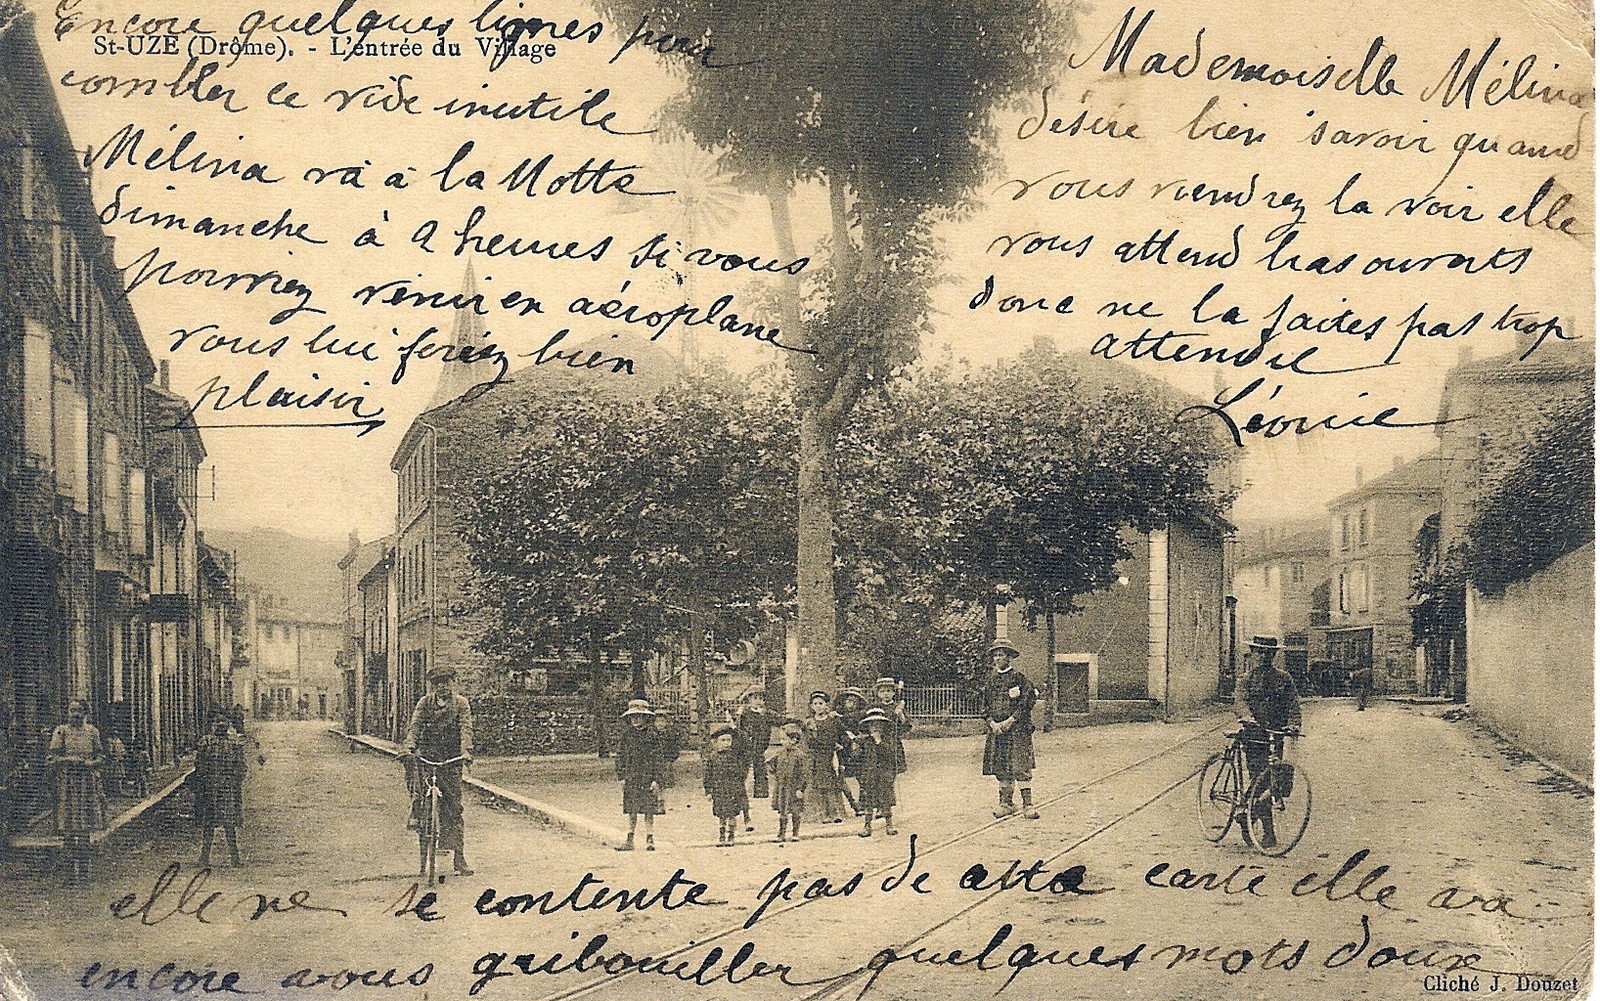 Encore quelques lignes pour
St-UZE (Drôme). - L'entrée du Village
combler ce vide inutile
Mélina va à la Motte
dimanche à 9 heures si vous
pourriez venir en aéroplane
vous lui feriez bien
plaisir
Mademoiselle Mélina
désire bien savoir quand
vous viendrez la voir elle
vous attend bras ouverts
donc ne la faites pas trop
attendre
Léonie
elle ne se contente pas de cette carte elle va
encore vous gribouiller quelques mots doux
Cliché J. Douzet